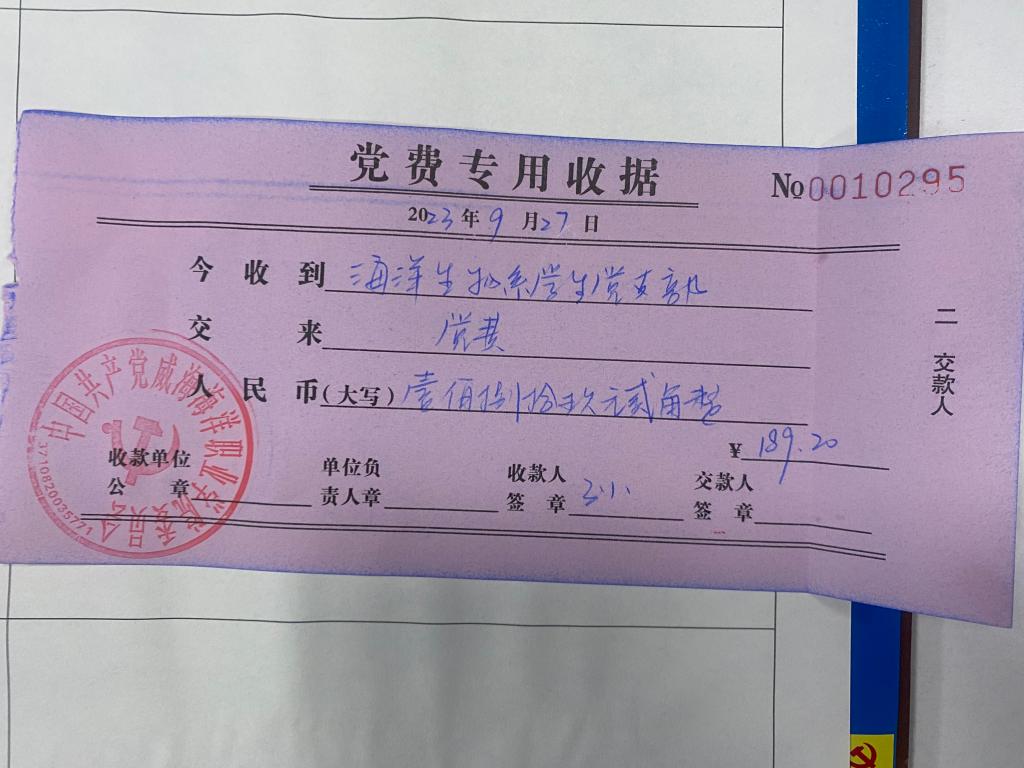 党费专用收据
No 0010295
2023年9月27日
今收到 海洋生物系学生党支部
交来 党费
人民币(大写) 壹佰捌拾玖元贰角整
¥ 189.20
收款单位公章
单位负责人章
收款人签章
交款人签章
二 交款人
中国共产党威海海洋职业学院委员会
3710820035771